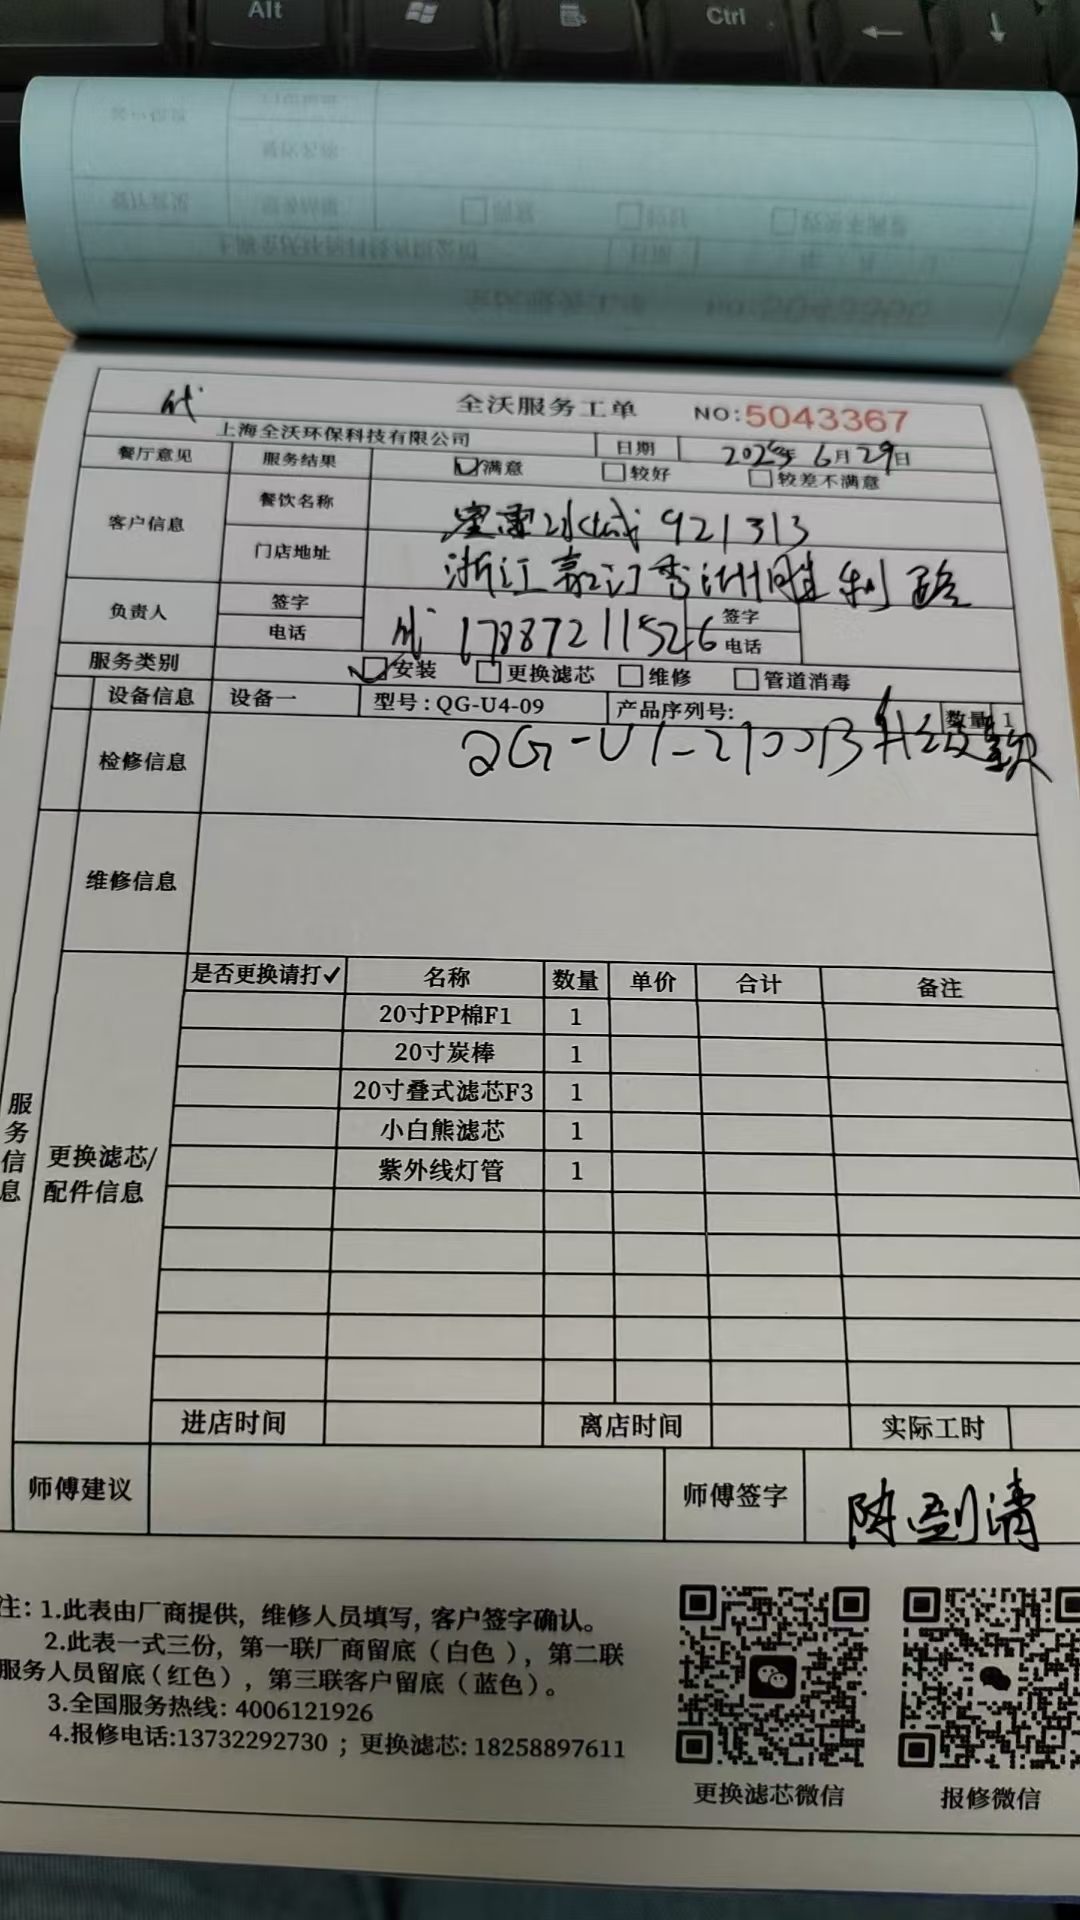 Alt
Ctrl
代
全沃服务工单 NO:5043367
上海全沃环保科技有限公司 日期 6月29日
餐厅意见 服务结果 ☑满意 □较好 □较差不满意
客户信息 餐饮名称 蜜雪冰城 921313
门店地址 浙江嘉兴秀洲胜利路
负责人 签字 代 签字
电话 17887211526 电话
服务类别 ☑安装 □更换滤芯 □维修 □管道消毒
设备信息 设备一 型号:QG-U4-09 产品序列号: 数量 1
检修信息 QG-U1-2100B升级款
维修信息
服务信息
更换滤芯/配件信息
是否更换请打✓ 名称 数量 单价 合计 备注
20寸PP棉F1 1
20寸炭棒 1
20寸叠式滤芯F3 1
小白熊滤芯 1
紫外线灯管 1
进店时间 离店时间 实际工时
师傅建议 师傅签字
注:1.此表由厂商提供, 维修人员填写, 客户签字确认。
2.此表一式三份, 第一联厂商留底(白色), 第二联
服务人员留底(红色), 第三联客户留底(蓝色)。
3.全国服务热线: 4006121926
4.报修电话:13732292730 ; 更换滤芯: 18258897611
更换滤芯微信 报修微信